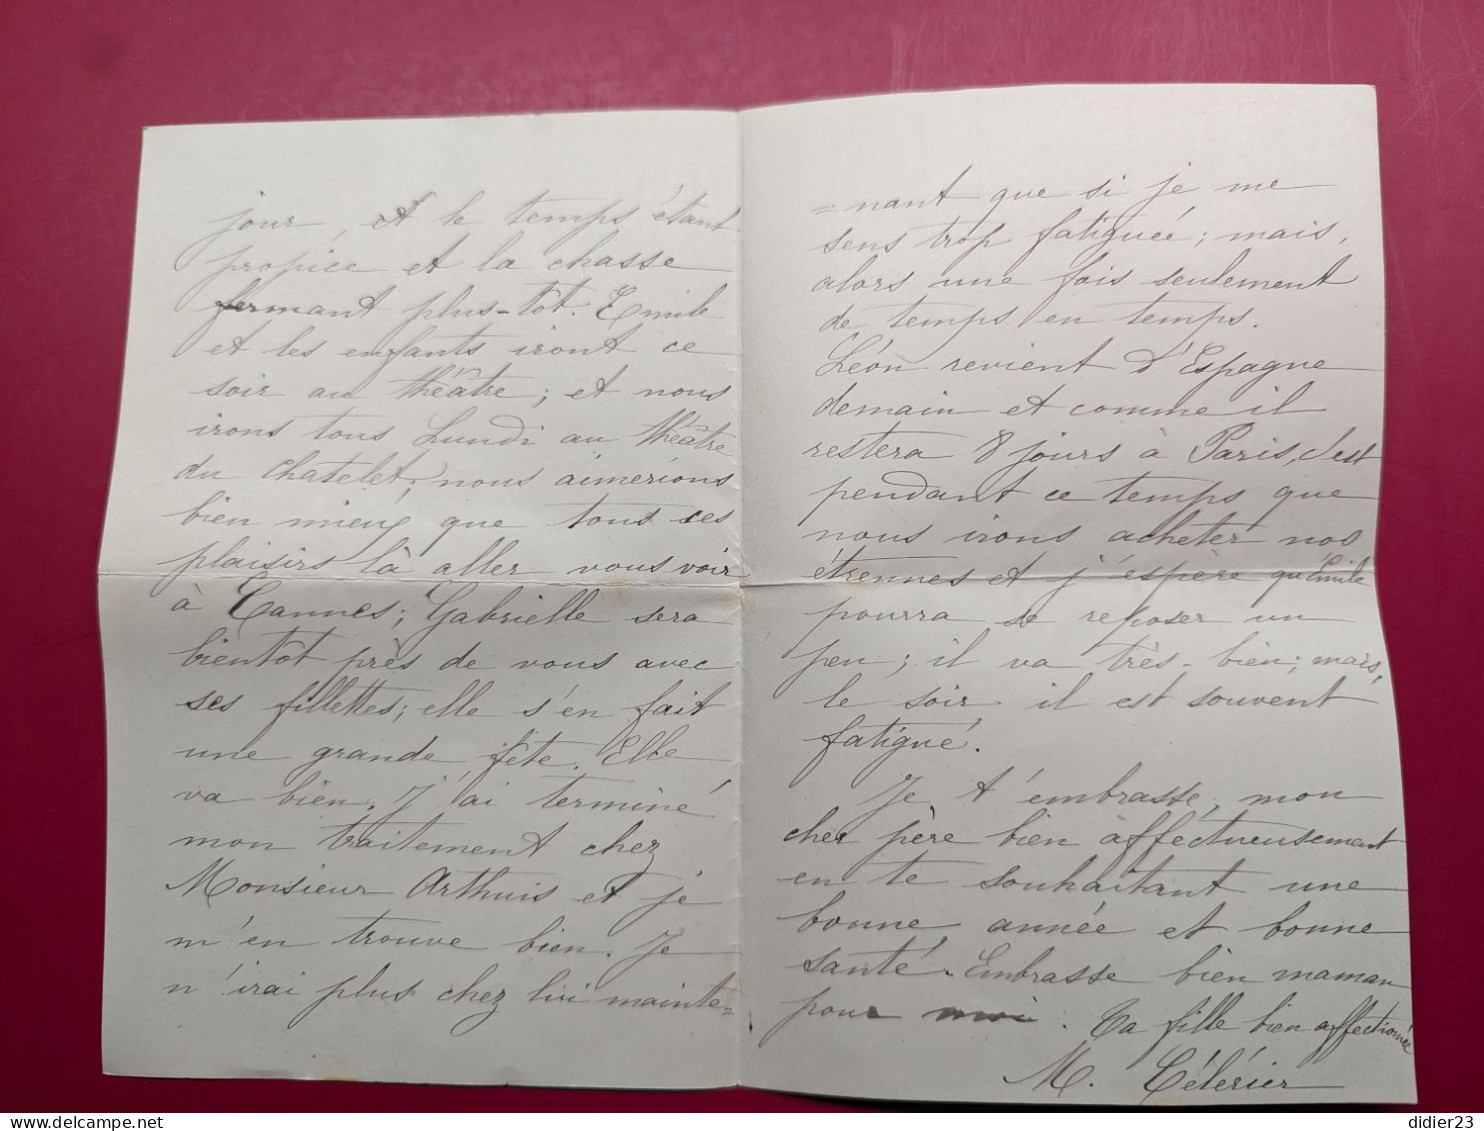 jour, et le temps étant
propice et la chasse
fermant plus-tôt. Emile
et les enfants iront ce
soir au théâtre; et nous
irons tous Lundi au théâtre
du Chatelet; nous aimerions
bien mieux que tous ces
plaisirs là aller vous voir
à Cannes; Gabrielle sera
bientôt près de vous avec
ses fillettes; elle s'en fait
une grande fête. Elle
va bien. J'ai terminé
mon traitement chez
Monsieur Arthuis et je
m'en trouve bien. Je
n'irai plus chez lui mainte=
=nant que si je me
sens trop fatiguée; mais,
alors une fois seulement
de temps en temps.
Léon revient d'Espagne
demain et comme il
restera 8 jours à Paris, c'est
pendant ce temps que
nous irons acheter nos
étrennes et j'espère qu'Emile
pourra se reposer un
peu; il va très-bien; mais,
le soir il est souvent
fatigué.
Je t'embrasse, mon
cher père bien affectueusement
en te souhaitant une
bonne année et bonne
santé. Embrasse bien maman
pour moi. Ta fille bien affectionnée
M. Célérier
didier23